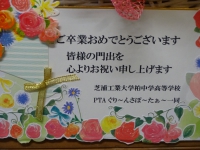 ご卒業おめでとうございます
皆様の門出を
心よりお祝い申し上げます
芝浦工業大学柏中学高等学校
PTA ぐり～んさぽ～たぁ～一同